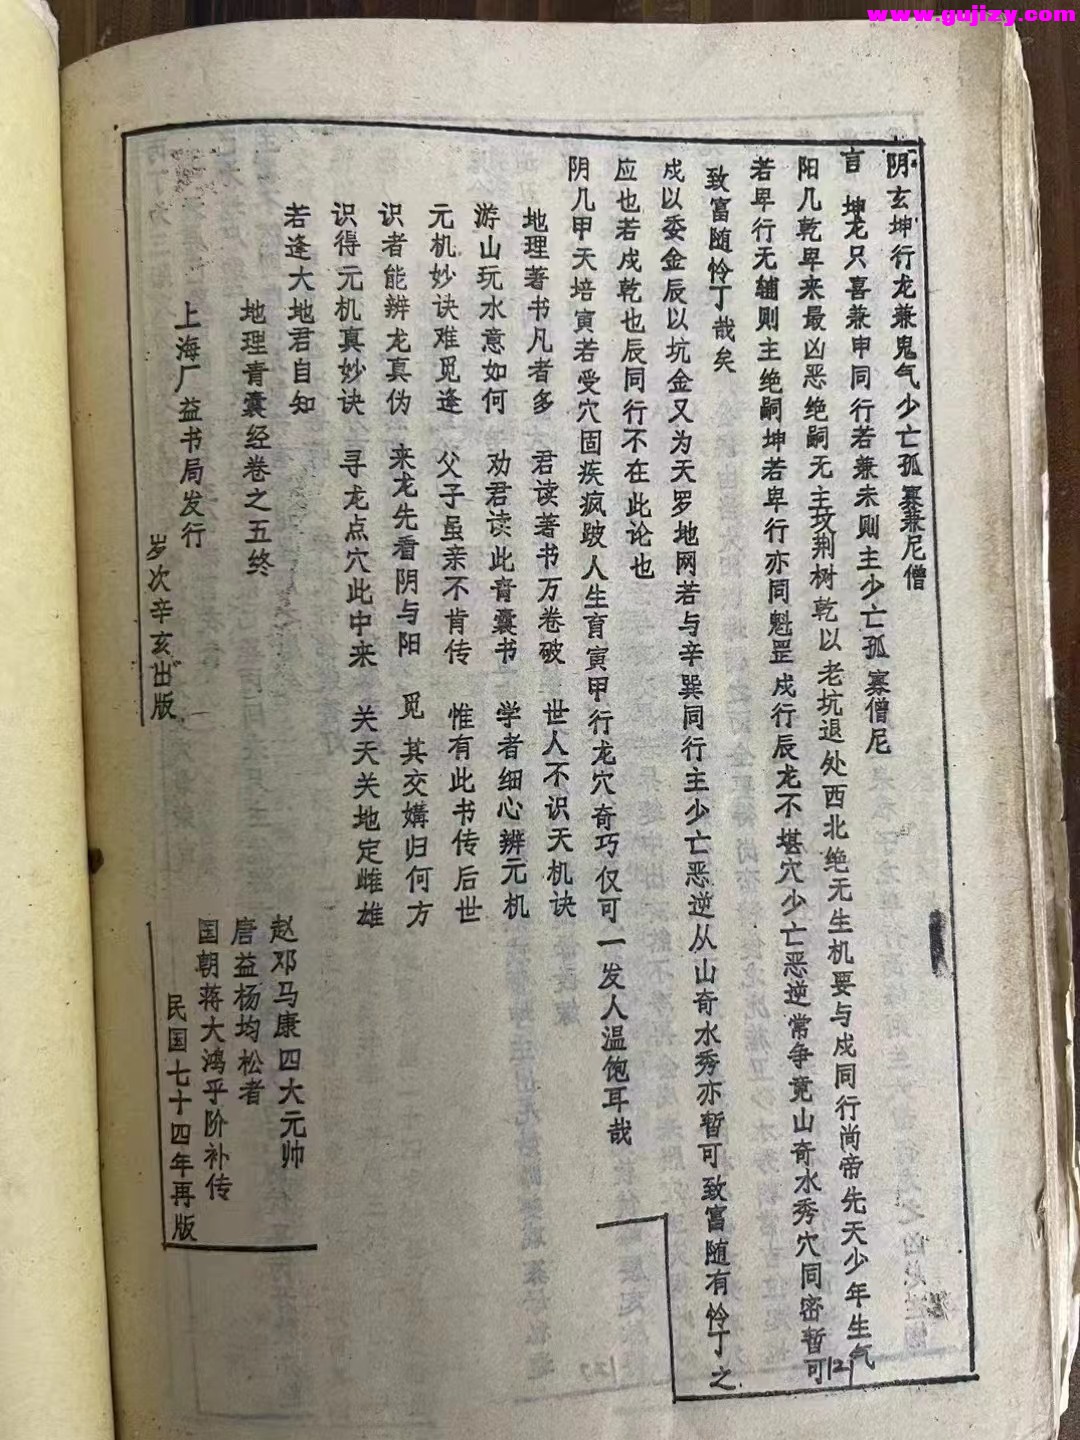 www.gujizy.com
阴玄坤行龙兼鬼气少亡孤寡兼尼僧
言 坤龙只喜兼申同行若兼未则主少亡孤寡僧尼
阳几乾卑来最凶恶绝嗣无主坟荆树乾以老坑退处西北绝无生机要与戍同行尚帝先天少年生气
若卑行无辅则主绝嗣坤若卑行亦同魁罡戍行辰龙不堪穴少亡恶逆常争竟山奇水秀穴同密暂可
致富随怜丁哉矣
戍以委金辰以坑金又为天罗地网若与辛巽同行主少亡恶逆从山奇水秀亦暂可致富随有怜丁之
应也若戍乾也辰同行不在此论也
阴几甲天培寅若受穴固疾疯跛人生育寅甲行龙穴奇巧仅可一发人温饱耳哉
地理著书凡者多 君读著书万卷破 世人不识天机诀
游山玩水意如何 劝君读此青囊书 学者细心辨元机
元机妙诀难觅逢 父子虽亲不肯传 惟有此书传后世
识者能辨龙真伪 来龙先看阴与阳 觅其交媾归何方
识得元机真妙诀 寻龙点穴此中来 关天关地定雌雄
若逢大地君自知
地理青囊经卷之五终
上海厂益书局发行
岁次辛亥出版
赵邓马康四大元帅
唐益杨均松者
国朝蒋大鸿乎阶补传
民国七十四年再版
121